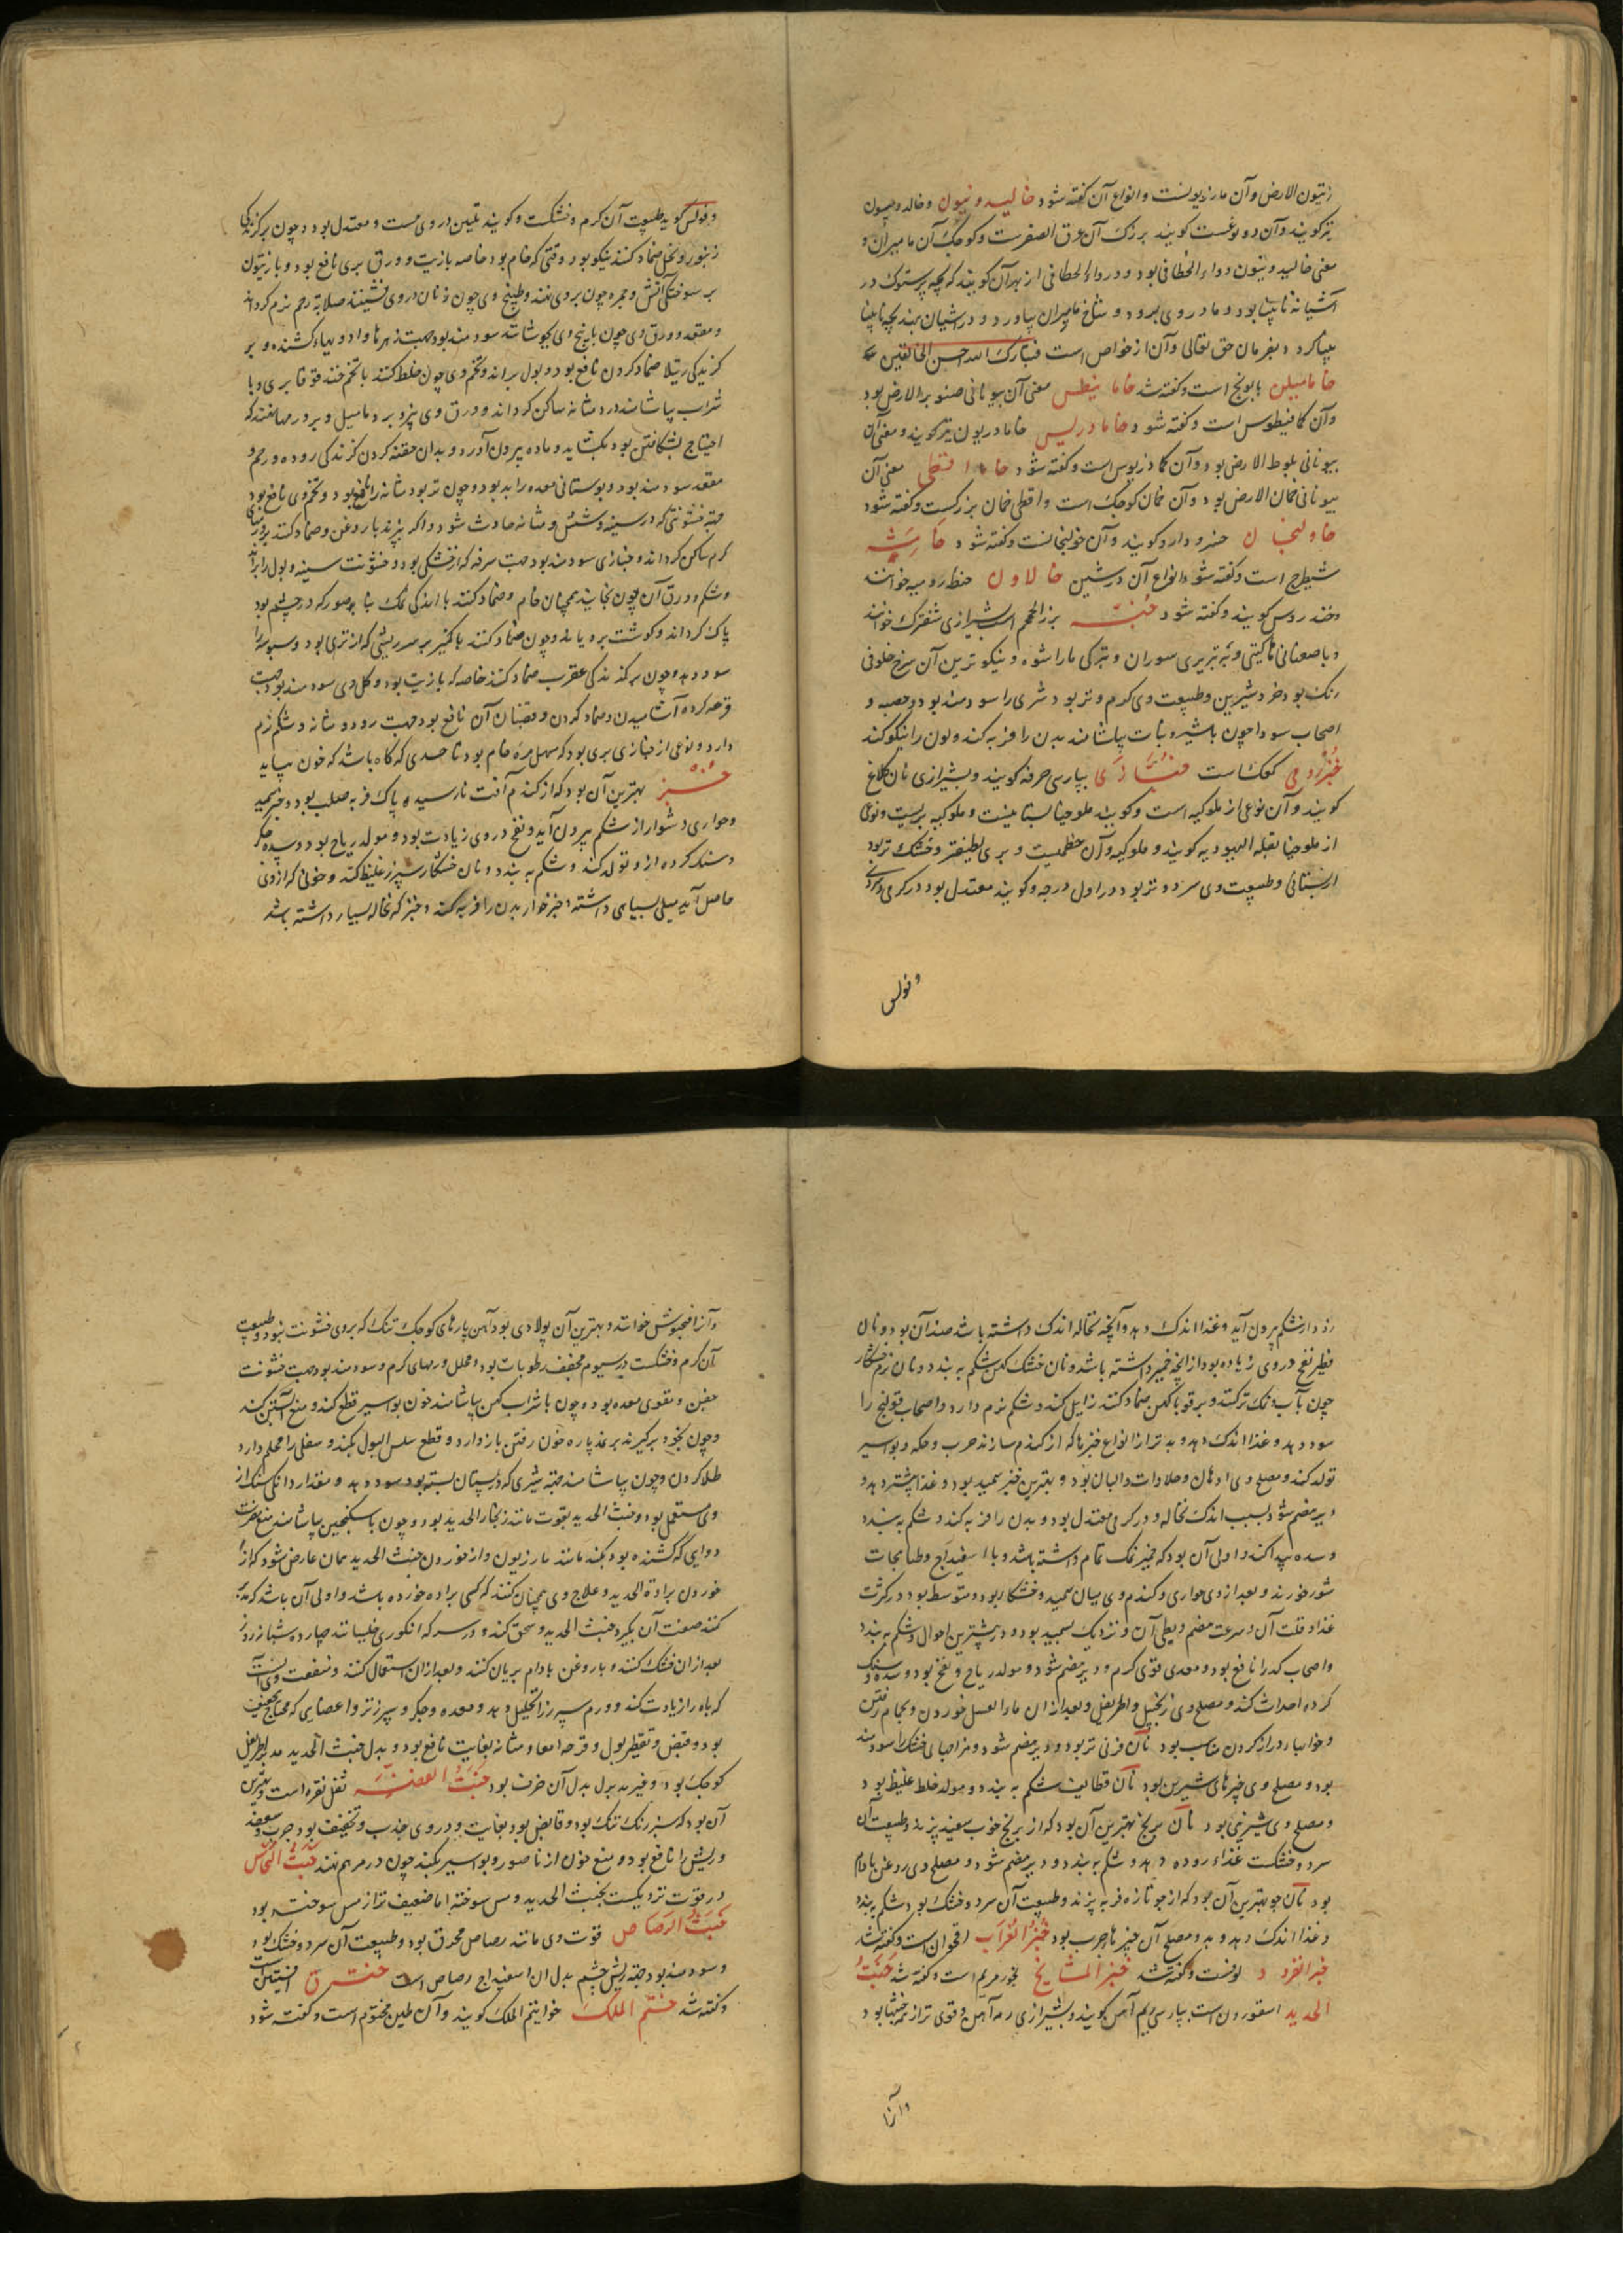 زیتون الارض وآن مازریونست وانواع آن کفته شود خالیدونیون وخالدومیون
نیز کویند وآن دو نوعست کویند بزرک آن عرق الصفرست وکوچک آن مامیران و
معنی خالیدونیون دواء الخطافی بود ودرداء الخطافی از بهرآن کویند که بچه پرستوک در
آشیانه نابینا بود ومادر وی برود وشاخ مامیران بیاورد ودر آشیان نهد بچه نابینا
بینا کردد بفرمان حق تعالی وآن از خواص است فتبارک الله احسن الخالقین
خامامیلن بابونج است وکفته شد خامانیطس معنی آن بیونانی صنوبر الارض بود
وآن کمافیطوس است وکفته شود خامادریس خامادریون نیز کویند ومعنی آن
بیونانی بلوط الارض بود وآن کمادریوس است وکفته شود خاما اقطی معنی آن
بیونانی خمان الارض بود وآن خمان کوچک است واقطی خمان بزرکست وکفته شود
خاولنجان خسرودارو کویند وآن خولنجانست وکفته شود خامشه
شیطرج است وکفته شود انواع آن در شین خالاون حنظ رومیه خوانند
وخندروس کویند وکفته شود خبه بزرالخمخم است بشیرازی شفترک خوانند
وباصفهانی خاکشی وبه تبریزی سوران وبترکی ماراشوه ونیکوترین آن سرخ خلوقی
رنک بود خرد شیرین وطبیعت وی کرم وتر بود شری را سودمند بود وحصبه و
اصحاب سودا چون باشیر ونبات بیاشامند بدن را فربه کند ولون را نیکو کند
خبز رومی کعک است خبازی بپارسی خرفه کویند وبشیرازی نان کلاغ
کویند وآن نوعی از ملوکیه است وکویند ملوخیا بستانیست وملوکیه بریست ونوعی
از ملوخیا بقله الیهودیه کویند وملوکیه وآن خطمیست وبری لطیفتر وخشک تر بود
از بستانی وطبیعت وی سرد وتر بود در اول درجه وکویند معتدل بود در کرمی وسردی
وفولس
وفولس کوید طبیعت آن کرم وخشکست وکویند تلیین در وی هست ومعتدل بود وچون بر کزندکی
زنبور ونحل ضماد کنند نیکو بود وقتی که خام بود خاصه بازیت وورق بری نافع بود وبا زیتون
بر سوختکی آتش وحمره چون بر وی نهند وطبیخ وی چون زنان در وی نشینند صلابة رحم نرم کرداند
ومقعد وورق وی چون بابیخ وی بجوشانند سودمند بود جهت زهرها وادویهاء کشنده وبر
کزیدکی رتیلا ضماد کردن نافع بود وبول براند وتخم وی چون خلط کنند باتخم حندقوقا بری وبا
شراب بیاشامند درد مثانه ساکن کرداند وورق وی بپزد وبر دمامیل وبر ورمها نهند که
احتیاج بشکافتن بود بکشاید وماده بیرون آورد وبدان حقنه کردن کزندکی روده ورحم و
مقعد سودمند بود وبوستانی معده را بد بود وچون تر بود مثانه را نافع بود وتخم وی نافع بود
جهت خشونتی که در سینه وشش ومثانه حادث شود واکر بپزند باروغن وضماد کنند بر ورمهای
کرم ساکن کرداند وخبازی سودمند بود جهت سرفه که از خشکی بود وخشونت سینه وبول را براند
وشکم وورق آن چون بخایند همچنان خام وضماد کنند با اندکی نمک بناصور که در چشم بود
پاک کرداند وکوشت برویاند وچون ضماد کنند باکمیز بر سر ریشی که از تری بود وسبوسه را
سود دهد وچون بر کزندکی عقرب ضماد کنند خاصه که بازیت بود وکل وی سودمند بود جهت
قرحه کرده آشامیدن وضماد کردن وقضبان آن نافع بود جهت روده ومثانه وشکم نرم
دارد ونوعی از خبازی بری بود که مسهل مره خام بود تا حدی که کاه باشد که خون بیاید
خبز بهترین آن بود که از کندم آفت نارسیده پاک فربه صلب بود وخبز سمید
وحواری دشوار از شکم بیرون آید ونفخ در وی زیادت بود ومولد ریاح بود وسده جکر
وسنک کرده ازو تولد کند وشکم ببندد ونان خشکار سپرز غلیظ کند وخونی که از وی
حاصل آید میلی بسیاهی داشته وخبز خوار بدن را فربه کند وخبز که نخاله بسیار داشته باشد
زود از شکم بیرون آید وغذا اندک دهد وآنچه نخاله اندک داشته باشد ضد آن بود ونان
فطیر نفخ در وی زیاده بود از آنچه خمیر داشته باشد ونان خشک کهن شکم به بندد ونان نرم خشکار
چون بآب ونمک تر کنند وبر قوبا کهن ضماد کنند زایل کند وشکم نرم دارد واصحاب قولنج را
سود دهد وغذا اندک دهد وبدتر از انواع خبزها که از کندم سازند جرب وحکه وبواسیر
تولد کند ومصلح وی ادهان وحلاوات والبان بود وبهترین خبز سمید بود وغذا بیشتر دهد و
دیر هضم شود بسبب اندک نخاله ودر کرمی معتدل بود وبدن را فربه کند وشکم به بندد
وسده پیدا کند واولی آن بود که خمیر نمک تمام داشته باشد وبا اسفیدباج وطباهجات
شور خورند وبعد از وی حواری وکندم وی میان سمید وخشکار بود ومتوسط بود در کثرت
غذا وقلت آن وسرعت هضم وبطی آن ونزدیک بسمید بود ودر بیشترین احوال وشکم به بندد
واصحاب کد را نافع بود ومعدی قوی کرم ودیر هضم شود ومولد ریاح ونفخ بود وسده وسنک
کرده احداث کند ومصلح وی زنجبیل واطریفل وبعد از آن ماء العسل خوردن وبحمام رفتن
وخوابها دراز کردن مناسب بود نان فرنی تر بود ودیر هضم شود ومزاجهای خشک را سودمند
بود ومصلح وی خبزهای شیرین بود نان قطایف شکم به بندد ومولد خلط غلیظ بود
ومصلح وی شیرینی بود نان برنج بهترین آن بود که از برنج خوب سفید پزند وطبیعت آن
سرد وخشکست غذاء روده دهد وشکم به بندد ودیر هضم شود ومصلح وی روغن بادام
بود نان جو بهترین آن بود که از جو تازه فربه پزند وطبیعت آن سرد وخشک بود شکم به بندد
وغذا اندک دهد ومصلح آن خبزهاء چرب بود خبز الغراب اقحوان است وکفته شد
خبز القرود لوفست وکفته شد خبز المشایخ بخور مریم است وکفته شد خبث
الحدید اسقوردن است بپارسی ریم آهن کویند وبشیرازی رمه آهن وقوی تر از همه خبثها بود
وآنرا
وآنرا خبجوش خوانند وبهترین آن پولادی بود آهن پارهای کوچک تنک که بر وی خشونت نبود وطبیعت
آن کرم وخشکست در سیوم مجفف رطوبات بود ومحلل ورمهای کرم وسودمند بود جهت خشونت
جفن ومقوی معده بود وچون باشراب کهن بیاشامند خون بواسیر قطع کند ومنع آبستن کند
وچون بخود برکیرند بر نمد پاره خون رفتن باز دارد وقطع سلس البول بکند وسفلی را محکم دارد
طلا کردن وچون بیاشامند جهت شیری که در پستان بسته بود سود دهد ومقدار دانکی سنک از
وی مستعمل بود وخبث الحدید بقوت مانند زنجار الحدید بود وچون باسکنجبین بیاشامند منع مضرت
دوایی که کشنده بود بکند مانند مازریون واز خوردن خبث الحدید همان عارض شود که از
خوردن برادة الحدید وعلاج وی همچنان کنند که کسی براده خورده باشد واولی آن باشد که مدبر
کنند صفت آن بکیرد خبث الحدید وسحق کند ودر سرکه انکوری خلیسانند چهارده شبانروز
بعد از آن خشک کنند وباروغن بادام بریان کنند وبعد از آن استعمال کنند ومنفعت وی آنست
که باه را زیادت کند وورم سپرز را تحلیل دهد ومعده وجکر وسپرز تر واعضایی که محتاج تجفیف
بود وقبض وتقطیر بول وقرحه امعا ومثانه بغایت نافع بود وبدل خبث الحدید مدبر اطریفل
کوچک بود وغیر مدبر بدل آن خزف بود خبث الفضه ثفل نقره است وبهترین
آن بود که سبز رنک تنک بود وقابض بود بغایت ودر وی جذب وتجفیف بود جرب وسعفه
وریش را نافع بود ومنع خون از ناصور وبواسیر بکند چون در مرهم نهند خبث النحاس
در قوت نزدیکست بخبث الحدید ومس سوخته اما ضعیف تر از مس سوخته بود
خبث الرصاص قوت وی مانند رصاص محرق بود وطبیعت آن سرد وخشک بود
وسودمند بود جهت ریش چشم بدل آن اسفیداج رصاص است ختترق افسنتین است
وکفته شد ختم الملک خواتیم الملک کویند وآن طین مختوم است وکفته شود